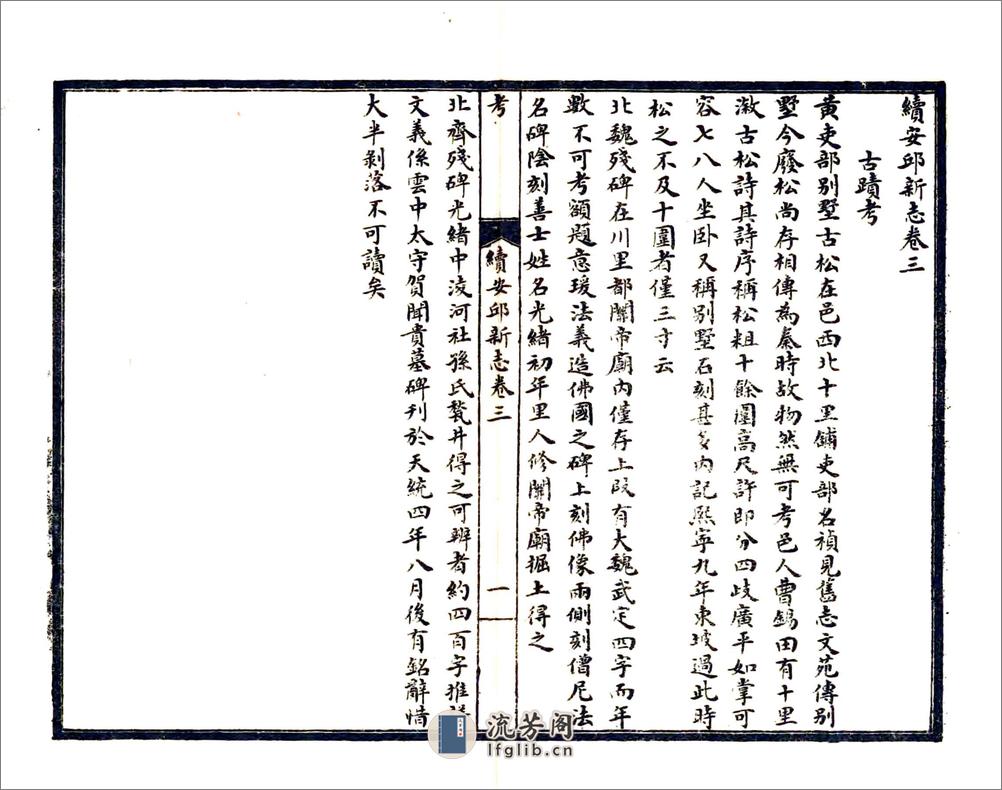 續安邱新志卷三
古蹟考
黃吏部別墅古松在邑西北十里鋪吏部名禎見舊志文苑傳別
墅今廢松尚存相傳為秦時故物然無可考邑人曹錫田有十里
澈古松詩其詩序稱松粗十餘圍高尺許即分四歧廣平如掌可
容七八人坐卧又稱別墅石刻甚多內記熙寧九年東坡過此時
松之不及十圍者僅三寸云
北魏殘碑在川里都關帝廟內僅存上段有大魏武定四字而年
數不可考額題意瑗法義造佛國之碑上刻佛像兩側刻僧尼法
名碑陰刻善士姓名光緒初年里人修關帝廟掘土得之
考
續安邱新志卷三
一
北齊殘碑光緒中淩河社孫氏甃井得之可辨者約四百字推
文義係雲中太守賀聞貴墓碑刊於天統四年八月後有銘辭惜
大半剝落不可讀矣
流芳阁
lfglib.cn